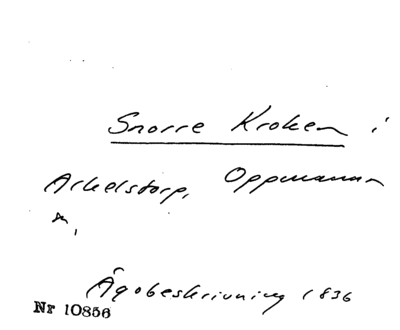 Snorre Kroken i
Arkelstorp, Oppmanna
Ägobeskrivning 1836
Nr 10856